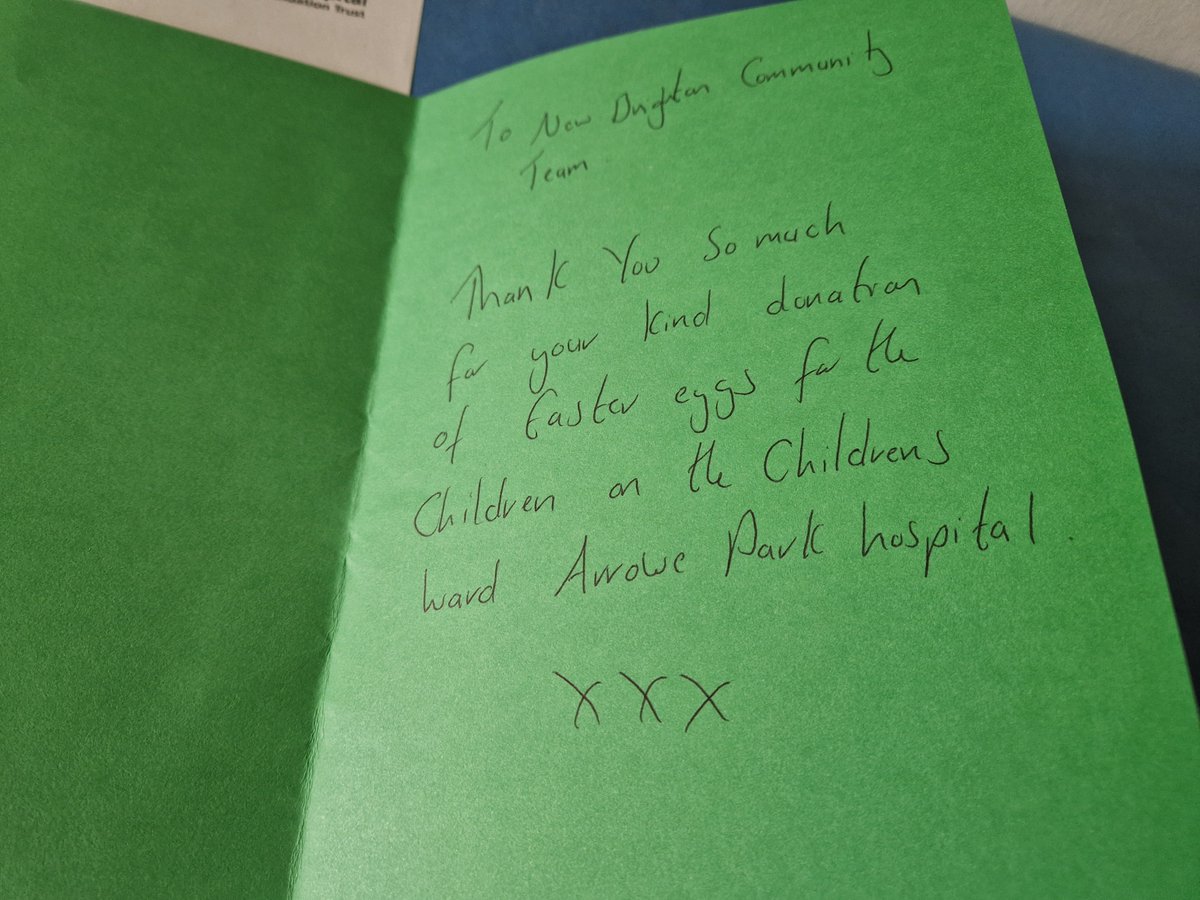 ation Trust
To New Brighton Community
Team
Thank You So much
for your kind donation
of Easter eggs for the
Children on the Childrens
ward Arrowe Park hospital.
XXX